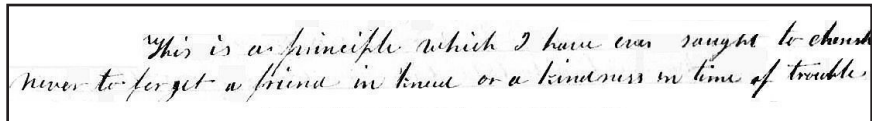 This is a principle which I have ever sought to cherish
never to forget a friend in kneed or a kindness in time of trouble